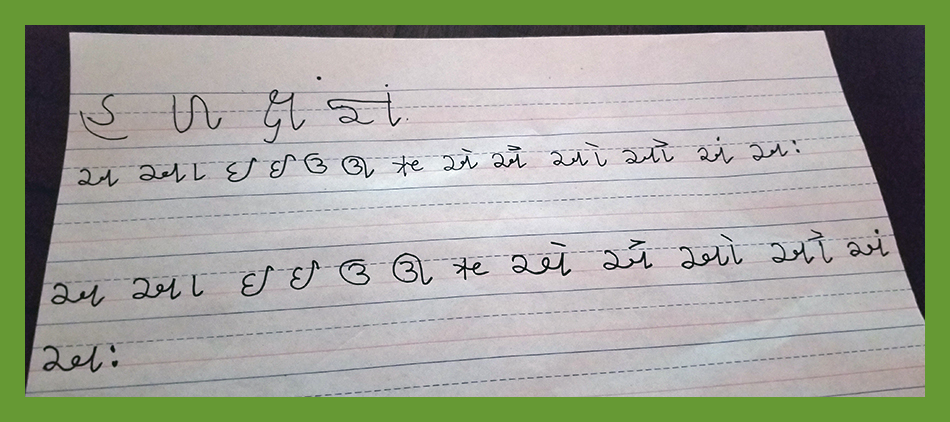 અ આ ઇ ઈ ઉ ઊ ઋ એ ઐ ઓ ઔ અં અઃ
અ આ ઇ ઈ ઉ ઊ ઋ એ ઐ ઓ ઔ અં
અઃ